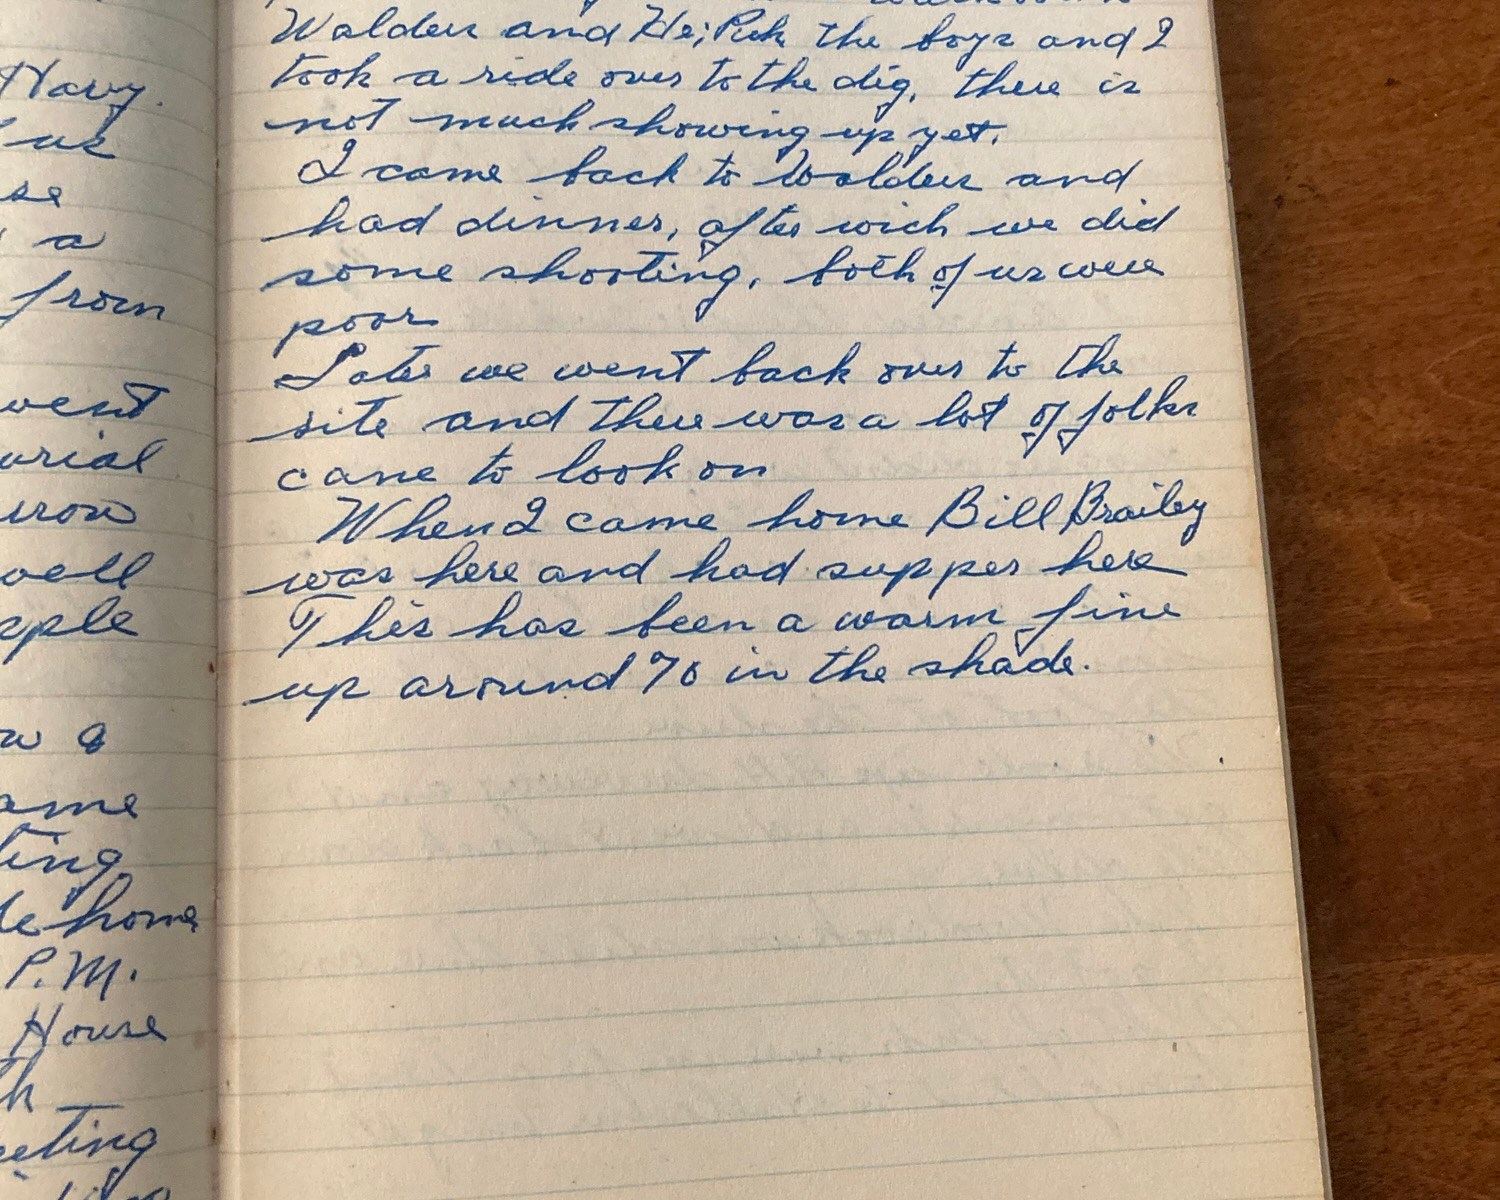 Havy.
us
se
a
from
went
urial
urow
well
ople
w a
ame
ting
de home
P.M.
House
th
eeting
Walden and He, Puk the boys and I
took a ride over to the dig, there is
not much showing up yet.
I came back to Walden and
had dinner, after wich we did
some shooting, both of us were
poor
Later we went back over to the
site and there was a lot of folks
cane to look on
When I came home Bill Brailey
was here and had supper here
This has been a warm fine
up around 70 in the shade.